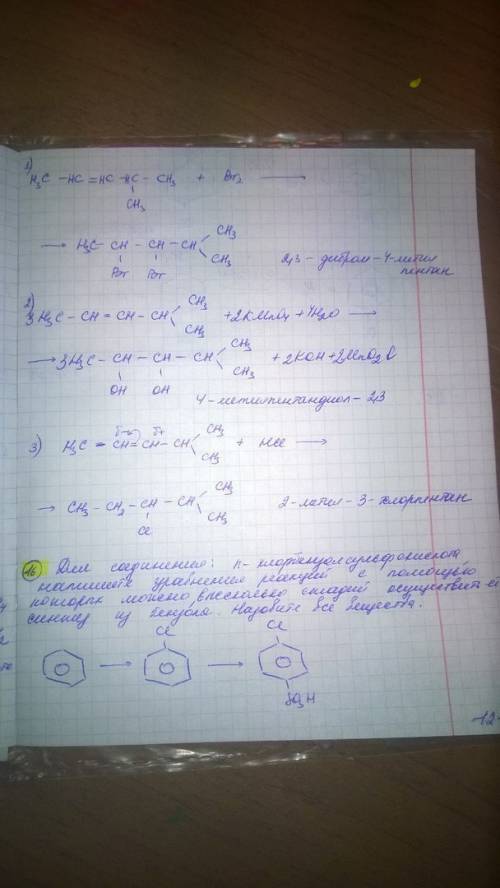 1)
H₃C - HC = HC - HC - CH₃ + Br₂ ⟶
CH₃
⟶ H₃C - CH - CH - CH CH₃ CH₃
Br Br
2,3 - дибром - 4 - метил
пентан
2)
3H₃C - CH = CH - CH CH₃ CH₃ + 2KMnO₄ + 4H₂O ⟶
⟶ 3H₃C - CH - CH - CH CH₃ CH₃ + 2KOH + 2MnO₂↓
OH OH
4 - метилпентандиол - 2,3
3) H₃C - CH = CH - CH CH₃ CH₃ + HCl ⟶
δ- δ+
⟶ CH₃ - CH₂ - CH - CH CH₃ CH₃
Cl
2 - метил - 3 - хлорпентан
16 Для соединения: п - хлорбензолсульфокислота
напишите уравнения реакций с помощью
которых можно в несколько стадий осуществить её
синтез из бензола. Назовите все вещества.
Cl Cl
⟶ ⟶
SO₃H
-12-